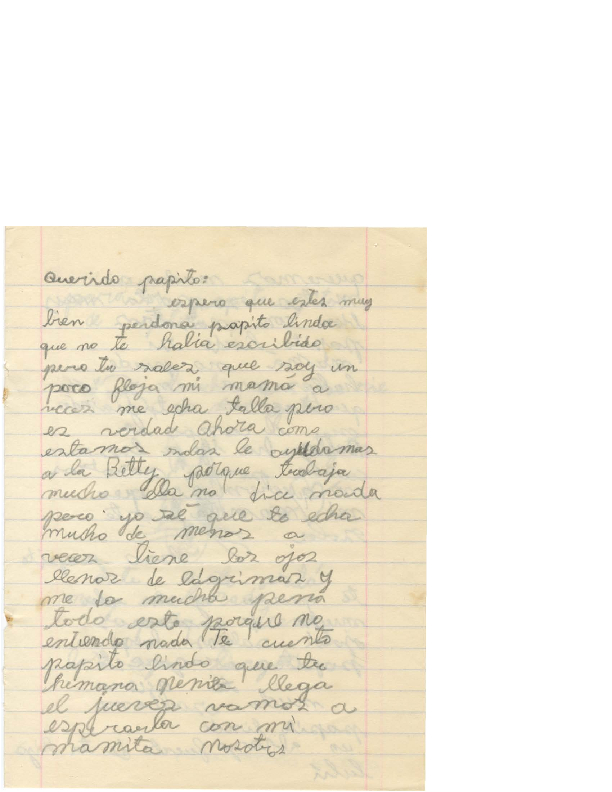 Querido papito:
espero que estes muy
bien perdona papito lindo
que no te habia escribido
pero tu sabes que soy un
poco floja mi mamá a
veces me echa talla pero
es verdad ahora como
estamos solas le ayudamos
a la Betty porque trabaja
mucho ella no dice nada
pero yo sé que te echa
mucho de menos a
veces tiene los ojos
llenos de lágrimas y
me da mucha pena
todo esto porque no
entiendo nada Te cuento
papito lindo que tu
hermana llega
el jueves vamos a
esperarla con mi
mamita nosotros